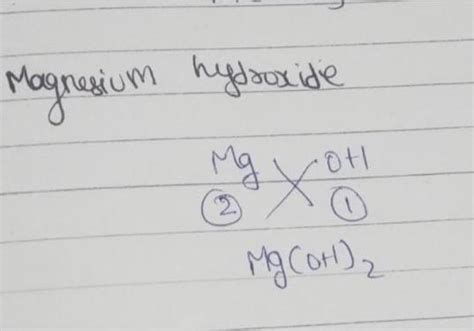 Magnesium hydroxide
Mg OH
2 1
Mg(OH)2